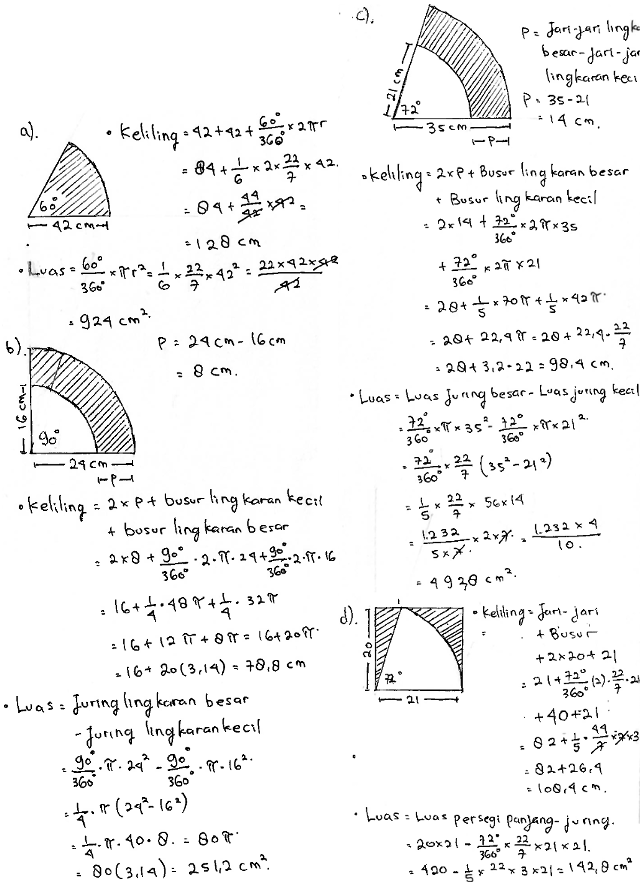 a).
60°
42 cm
• Keliling = 42 + 42 + 60°/360° × 2πr
= 84 + 1/6 × 2 × 22/7 × 42.
= 84 + 44/42 × 42 =
= 128 cm
• Luas = 60°/360° × πr² = 1/6 × 22/7 × 42² = 22 × 42 × 42/42
= 924 cm².
b).
16 cm
90°
24 cm
P
P = 24 cm - 16 cm
= 8 cm.
• Keliling = 2 × P + busur lingkaran kecil
+ busur lingkaran besar
= 2 × 8 + 90°/360° · 2 · π · 24 + 90°/360° · 2 · π · 16
= 16 + 1/4 · 48π + 1/4 · 32π
= 16 + 12π + 8π = 16 + 20π
= 16 + 20(3,14) = 78,8 cm
• Luas = Juring lingkaran besar
- Juring lingkaran kecil
= 90°/360° · π · 24² - 90°/360° · π · 16².
= 1/4 · π (24² - 16²)
= 1/4 · π · 40 · 8 = 80π
= 80(3,14) = 251,2 cm².
c).
21 cm
72°
35 cm
P
P = Jari-jari lingk
besar - Jari-jar
lingkaran keci
P = 35 - 21
= 14 cm.
• Keliling = 2 × P + Busur lingkaran besar
+ Busur lingkaran kecil
= 2 × 14 + 72°/360° × 2π × 35
+ 72°/360° × 2π × 21
= 28 + 1/5 × 70π + 1/5 × 42π
= 28 + 22,4π = 28 + 22,4 · 22/7
= 28 + 3,2 · 22 = 98,4 cm.
• Luas = Luas Juring besar - Luas juring kecil
= 72°/360° × π × 35² - 72°/360° × π × 21².
= 72°/360° × 22/7 (35² - 21²)
= 1/5 × 22/7 × 56 × 14
= 1.232/5 × 7 × 2 × 7 = 1.232 × 4/10.
= 492,8 cm².
d).
20
72°
21
• Keliling = Jari-jari
= + Busur
+ 2 × 20 + 21
= 21 + 72°/360° (2) · 22/7 · 21
+ 40 + 21
= 82 + 1/5 · 44/7 × 7 × 3
= 82 + 26,4
= 108,4 cm.
• Luas = Luas persegi panjang - juring.
= 20 × 21 - 72°/360° × 22/7 × 21 × 21.
= 420 - 1/5 × 22 × 3 × 21 = 142,8 cm²